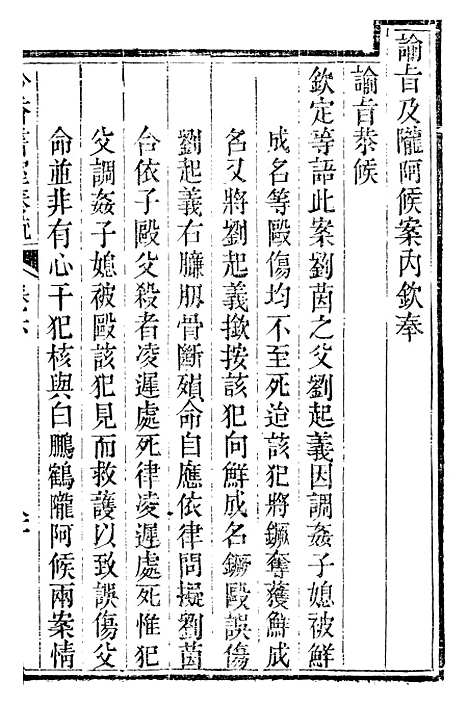 諭旨及隴阿候案內欽奉
諭旨恭候
欽定等語此案劉茵之父劉起義因調姦子媳被鮮
成名等毆傷均不至死迨該犯將鐝奪獲鮮成
名又將劉起義撳按該犯向鮮成名鐝毆誤傷
劉起義右臁肕骨斷殞命自應依律問擬劉茵
合依子毆父殺者凌遲處死律凌遲處死惟犯
父調姦子媳被毆該犯見而救護以致誤傷父
命並非有心干犯核與白鵬鶴隴阿候兩案情